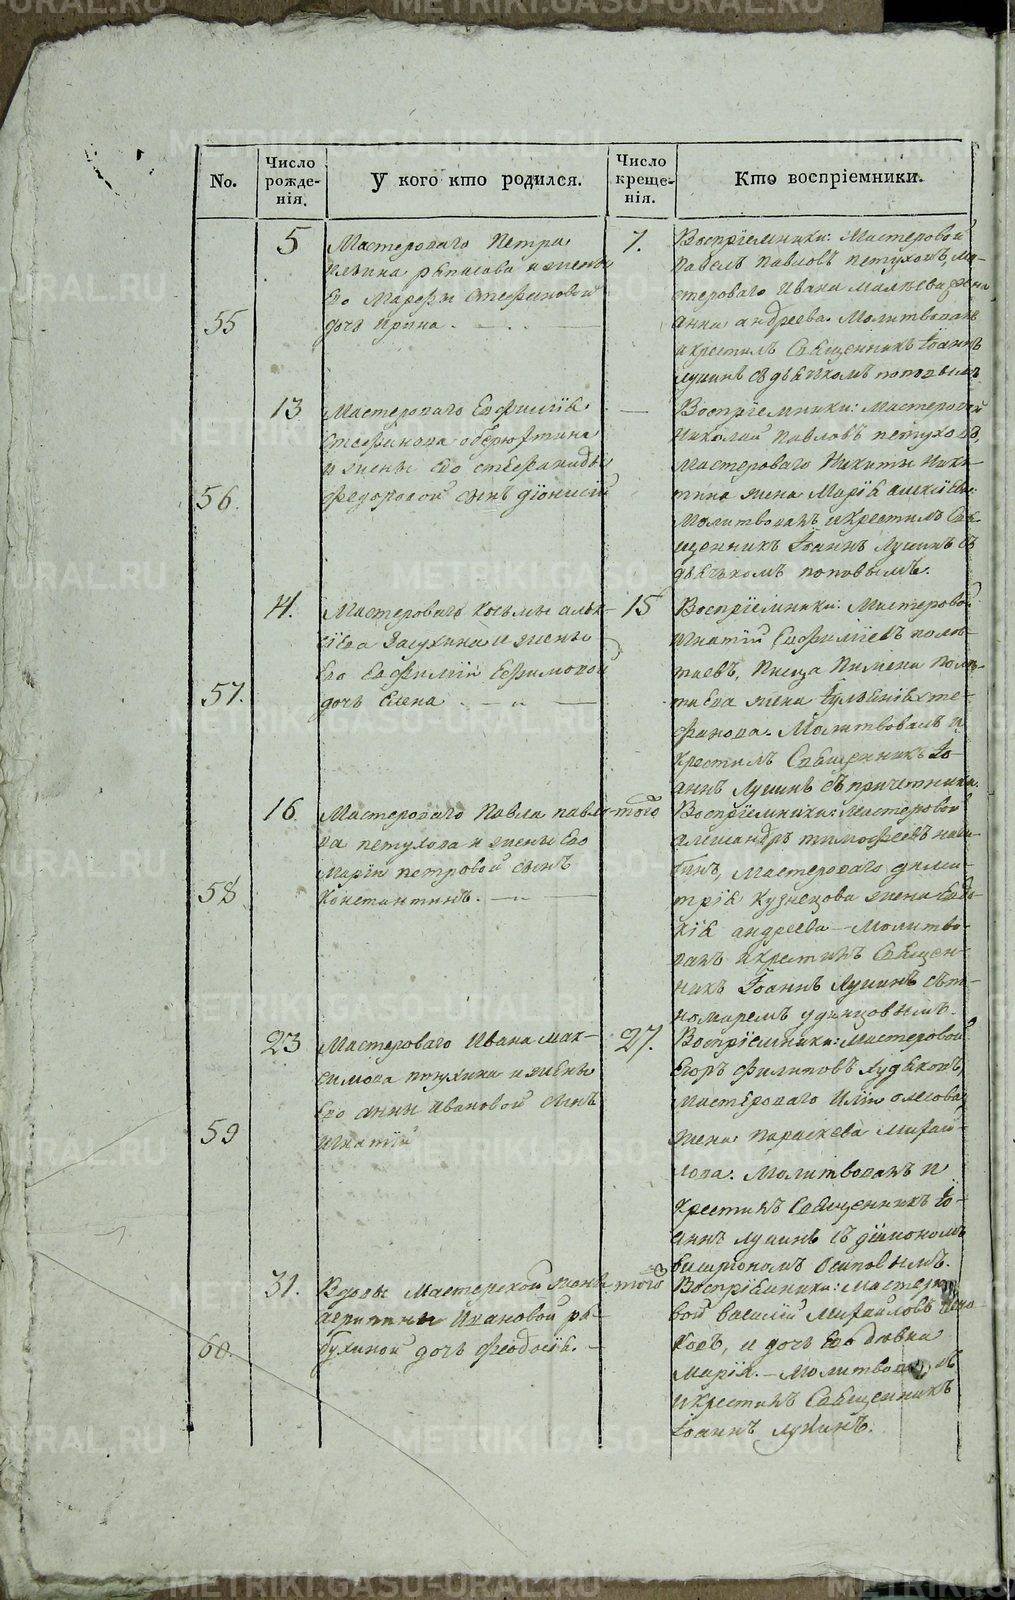 No.
Число рожде-нія.
У кого кто родился.
Число креще-нія.
Кто воспріемники.
55
5
Мастероваго Петра
Ильина и жены
Его Марфы Стефановой
дочь Ирина.
7.
Воспріемники: Мастеровой
Павелъ Павловъ Петуховъ, Ма-
стероваго Ивана жена
Анна Андреева. Молитвовалъ
и крестилъ Священникъ Іоаннъ
Лукинъ съ дьячкомъ Поповымъ
56.
13
Мастероваго Евфимія
Стефанова Оберюхтина
и жены Его Стефаниды
Федоровой сынъ Діонисій
—
Воспріемники: Мастеровой
Николай Павловъ Петуховъ,
Мастероваго Никиты Ники-
тина жена Марія Алексіева
Молитвовалъ и крестилъ Свя-
щенникъ Іоаннъ Лукинъ съ
дьячкомъ Поповымъ.
57.
14.
Мастероваго Козьмы Алек-
сіева и жены
Его Евфиміи Ефимовой
дочь Елена
15
Воспріемники: Мастеровой
Игнатій Евфиміевъ Полу-
Писца Пимена
жена Іуліанія Сте-
фанова. Молитвовалъ и
крестилъ Священникъ Іо-
аннъ Лукинъ съ причетники.
58
16.
Мастероваго Павла Павло-
ва Петухова и жены Его
Маріи Петровой сынъ
Константинъ.
того
Воспріемники: Мастеровой
Александръ Тимофеевъ
Мастероваго Дими-
трія Кузнецова жена Евдо-
кія Андреева — Молитво-
валъ и крестилъ Священ-
никъ Іоаннъ Лукинъ съ по-
номаремъ Удинцовымъ.
59
23
Мастероваго Ивана Мак-
симова и жены
Его Анны Ивановой сынъ
Игнатій
27.
Воспріемники: Мастеровой
Егоръ Филиповъ Худяковъ,
Мастероваго Иліи
жена Параскева Михай-
лова. Молитвовалъ и
крестилъ Священникъ Іо-
аннъ Лукинъ съ діакономъ
Осиповымъ.
60.
31.
Вдовы Мастерской жены
Ивановой Ря-
бухиной дочь Феодосія.
того
Воспріемники: Мастеро-
вой Василій Михайловъ
и дочь Его дѣвка
Марія. — Молитвовалъ
и крестилъ Священникъ
Іоаннъ Лукинъ.
METRIKI.GASO-URAL.RU